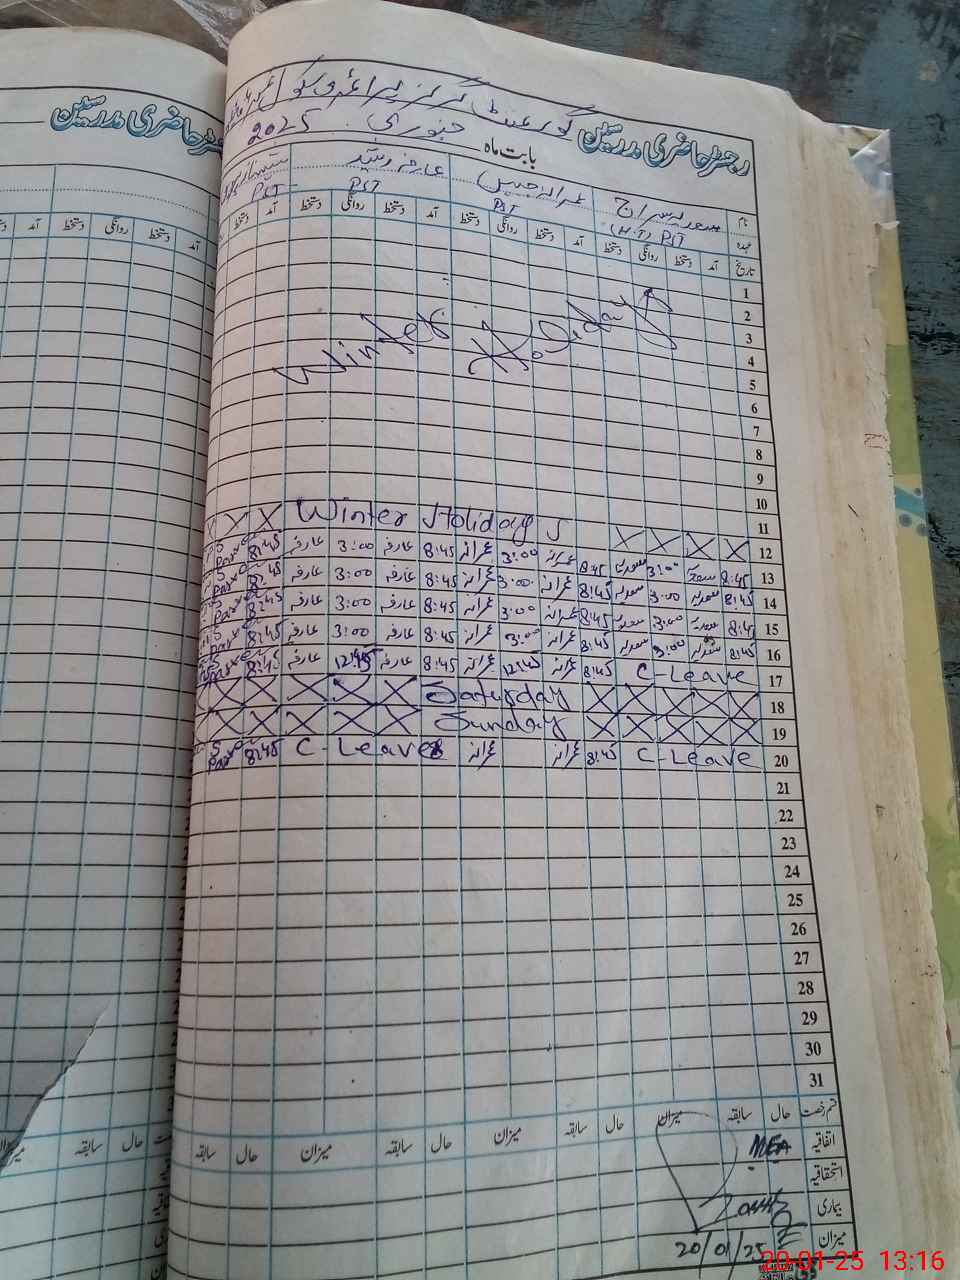 رجسٹر حاضری مدرسین گورنمنٹ گرلز پرائمری سکول
رجسٹر حاضری مدرسین
بابت ماہ جنوری 2025
نام سعدیہ سراج عارفہ رشید
عہدہ PST (H.T) PST PST PST
تاریخ آمد دستخط روانگی دستخط آمد دستخط روانگی دستخط آمد دستخط روانگی دستخط آمد دستخط
1
2
3
4
5
6
7
8
9
10
Winter Holidays
11
Winter Holidays
12
13 8:45 سعدیہ 3:00 سعدیہ 8:45 عمرانہ 3:00 عمرانہ 8:45 عارفہ 3:00 عارفہ 8:45
14 8:45 سعدیہ 3:00 سعدیہ 8:45 عمرانہ 3:00 عمرانہ 8:45 عارفہ 3:00 عارفہ 8:45
15 8:45 سعدیہ 3:00 سعدیہ 8:45 عمرانہ 3:00 عمرانہ 8:45 عارفہ 3:00 عارفہ 8:45
16 8:45 سعدیہ 3:00 سعدیہ 8:45 عمرانہ 3:00 عمرانہ 8:45 عارفہ 3:00 عارفہ 8:45
17 C-Leave 8:45 عمرانہ 12:45 عمرانہ 8:45 عارفہ 12:45 عارفہ 8:45
18 Saturday
19 Sunday
20 C-Leave 8:45 عمرانہ عمرانہ C-Leave 8:45
21
22
23
24
25
26
27
28
29
30
31
قسم رخصت حال سابقہ میزان حال سابقہ میزان حال سابقہ میزان حال سابقہ
اتفاقیہ MEA
استحقاقیہ
بیماری
میزان 20/01/25
20-01-25 13:16